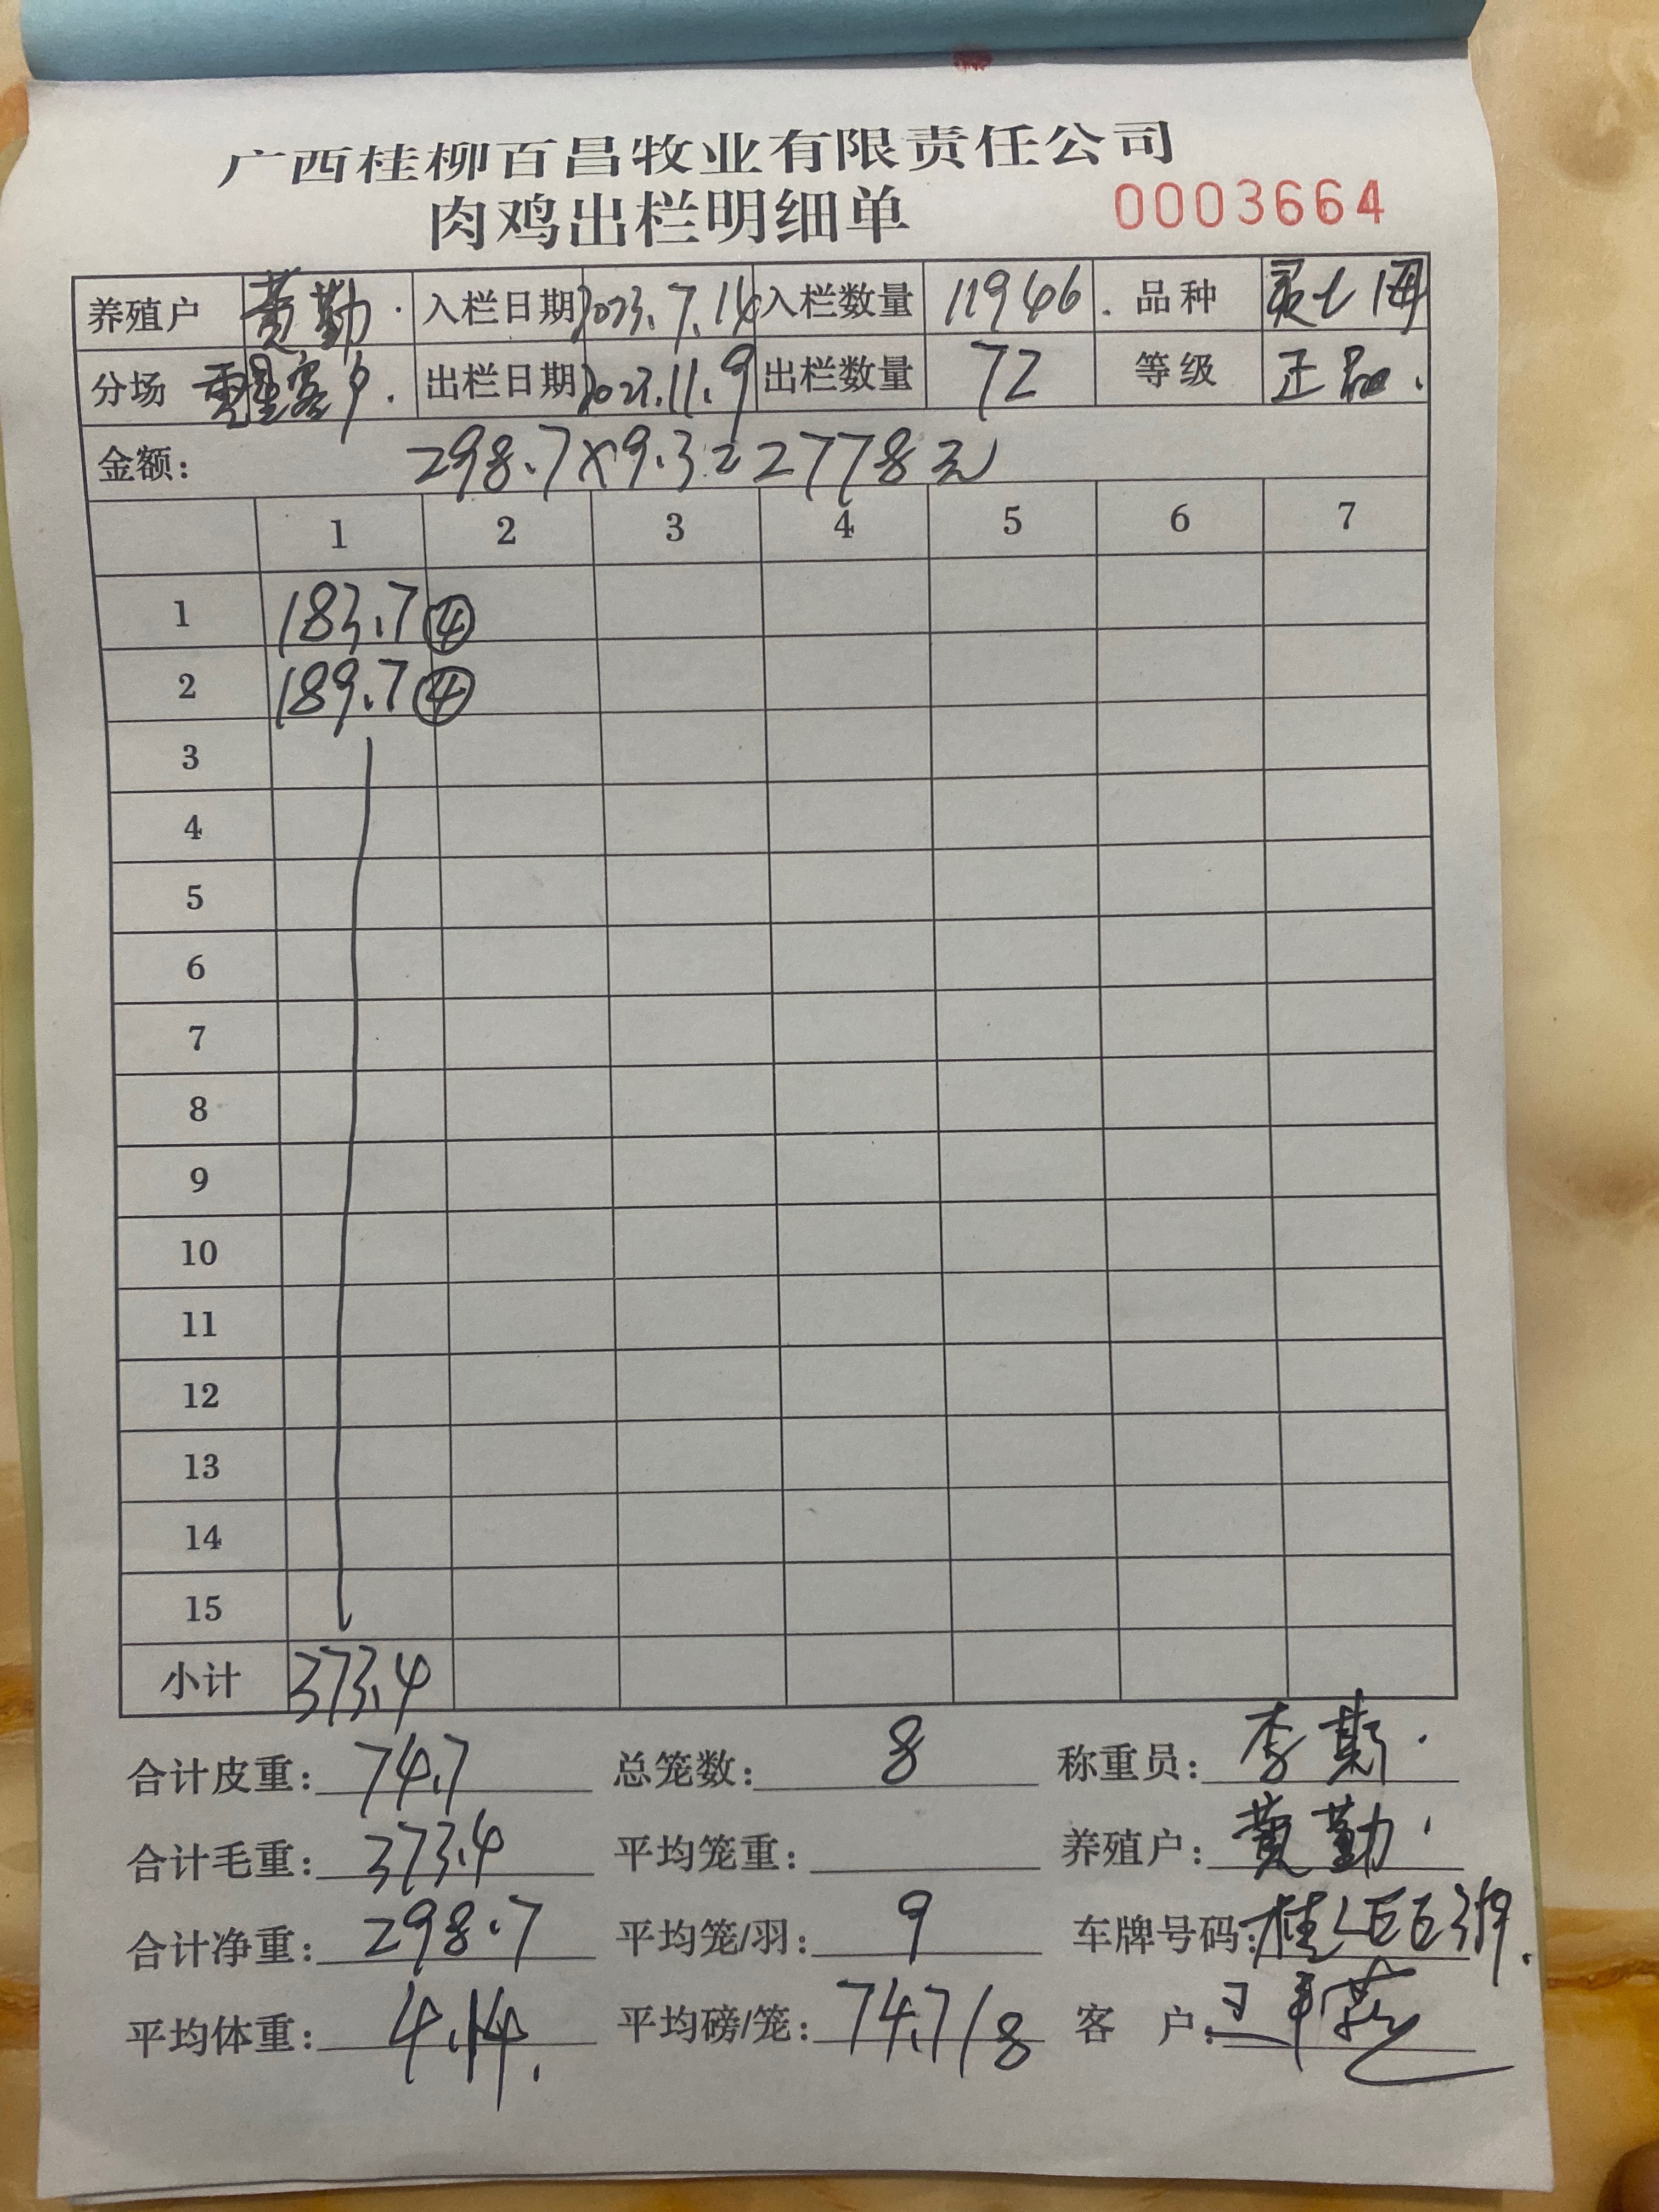 广西桂柳百昌牧业有限责任公司
肉鸡出栏明细单 0003664
养殖户 黄勤. 入栏日期 2023.7.14 入栏数量 11946. 品种
分场 客户. 出栏日期 2023.11.9 出栏数量 72 等级 正品.
金额: 298.7×9.3=2778元
1 2 3 4 5 6 7
1 183.7④
2 189.7④
3
4
5
6
7
8
9
10
11
12
13
14
15
小计 373.4
合计皮重: 74.7 总笼数: 8 称重员: 李
合计毛重: 373.4 平均笼重: 养殖户: 黄勤.
合计净重: 298.7 平均笼/羽: 9 车牌号码: 桂
平均体重: 4.14. 平均磅/笼: 74.7/8 客 户: